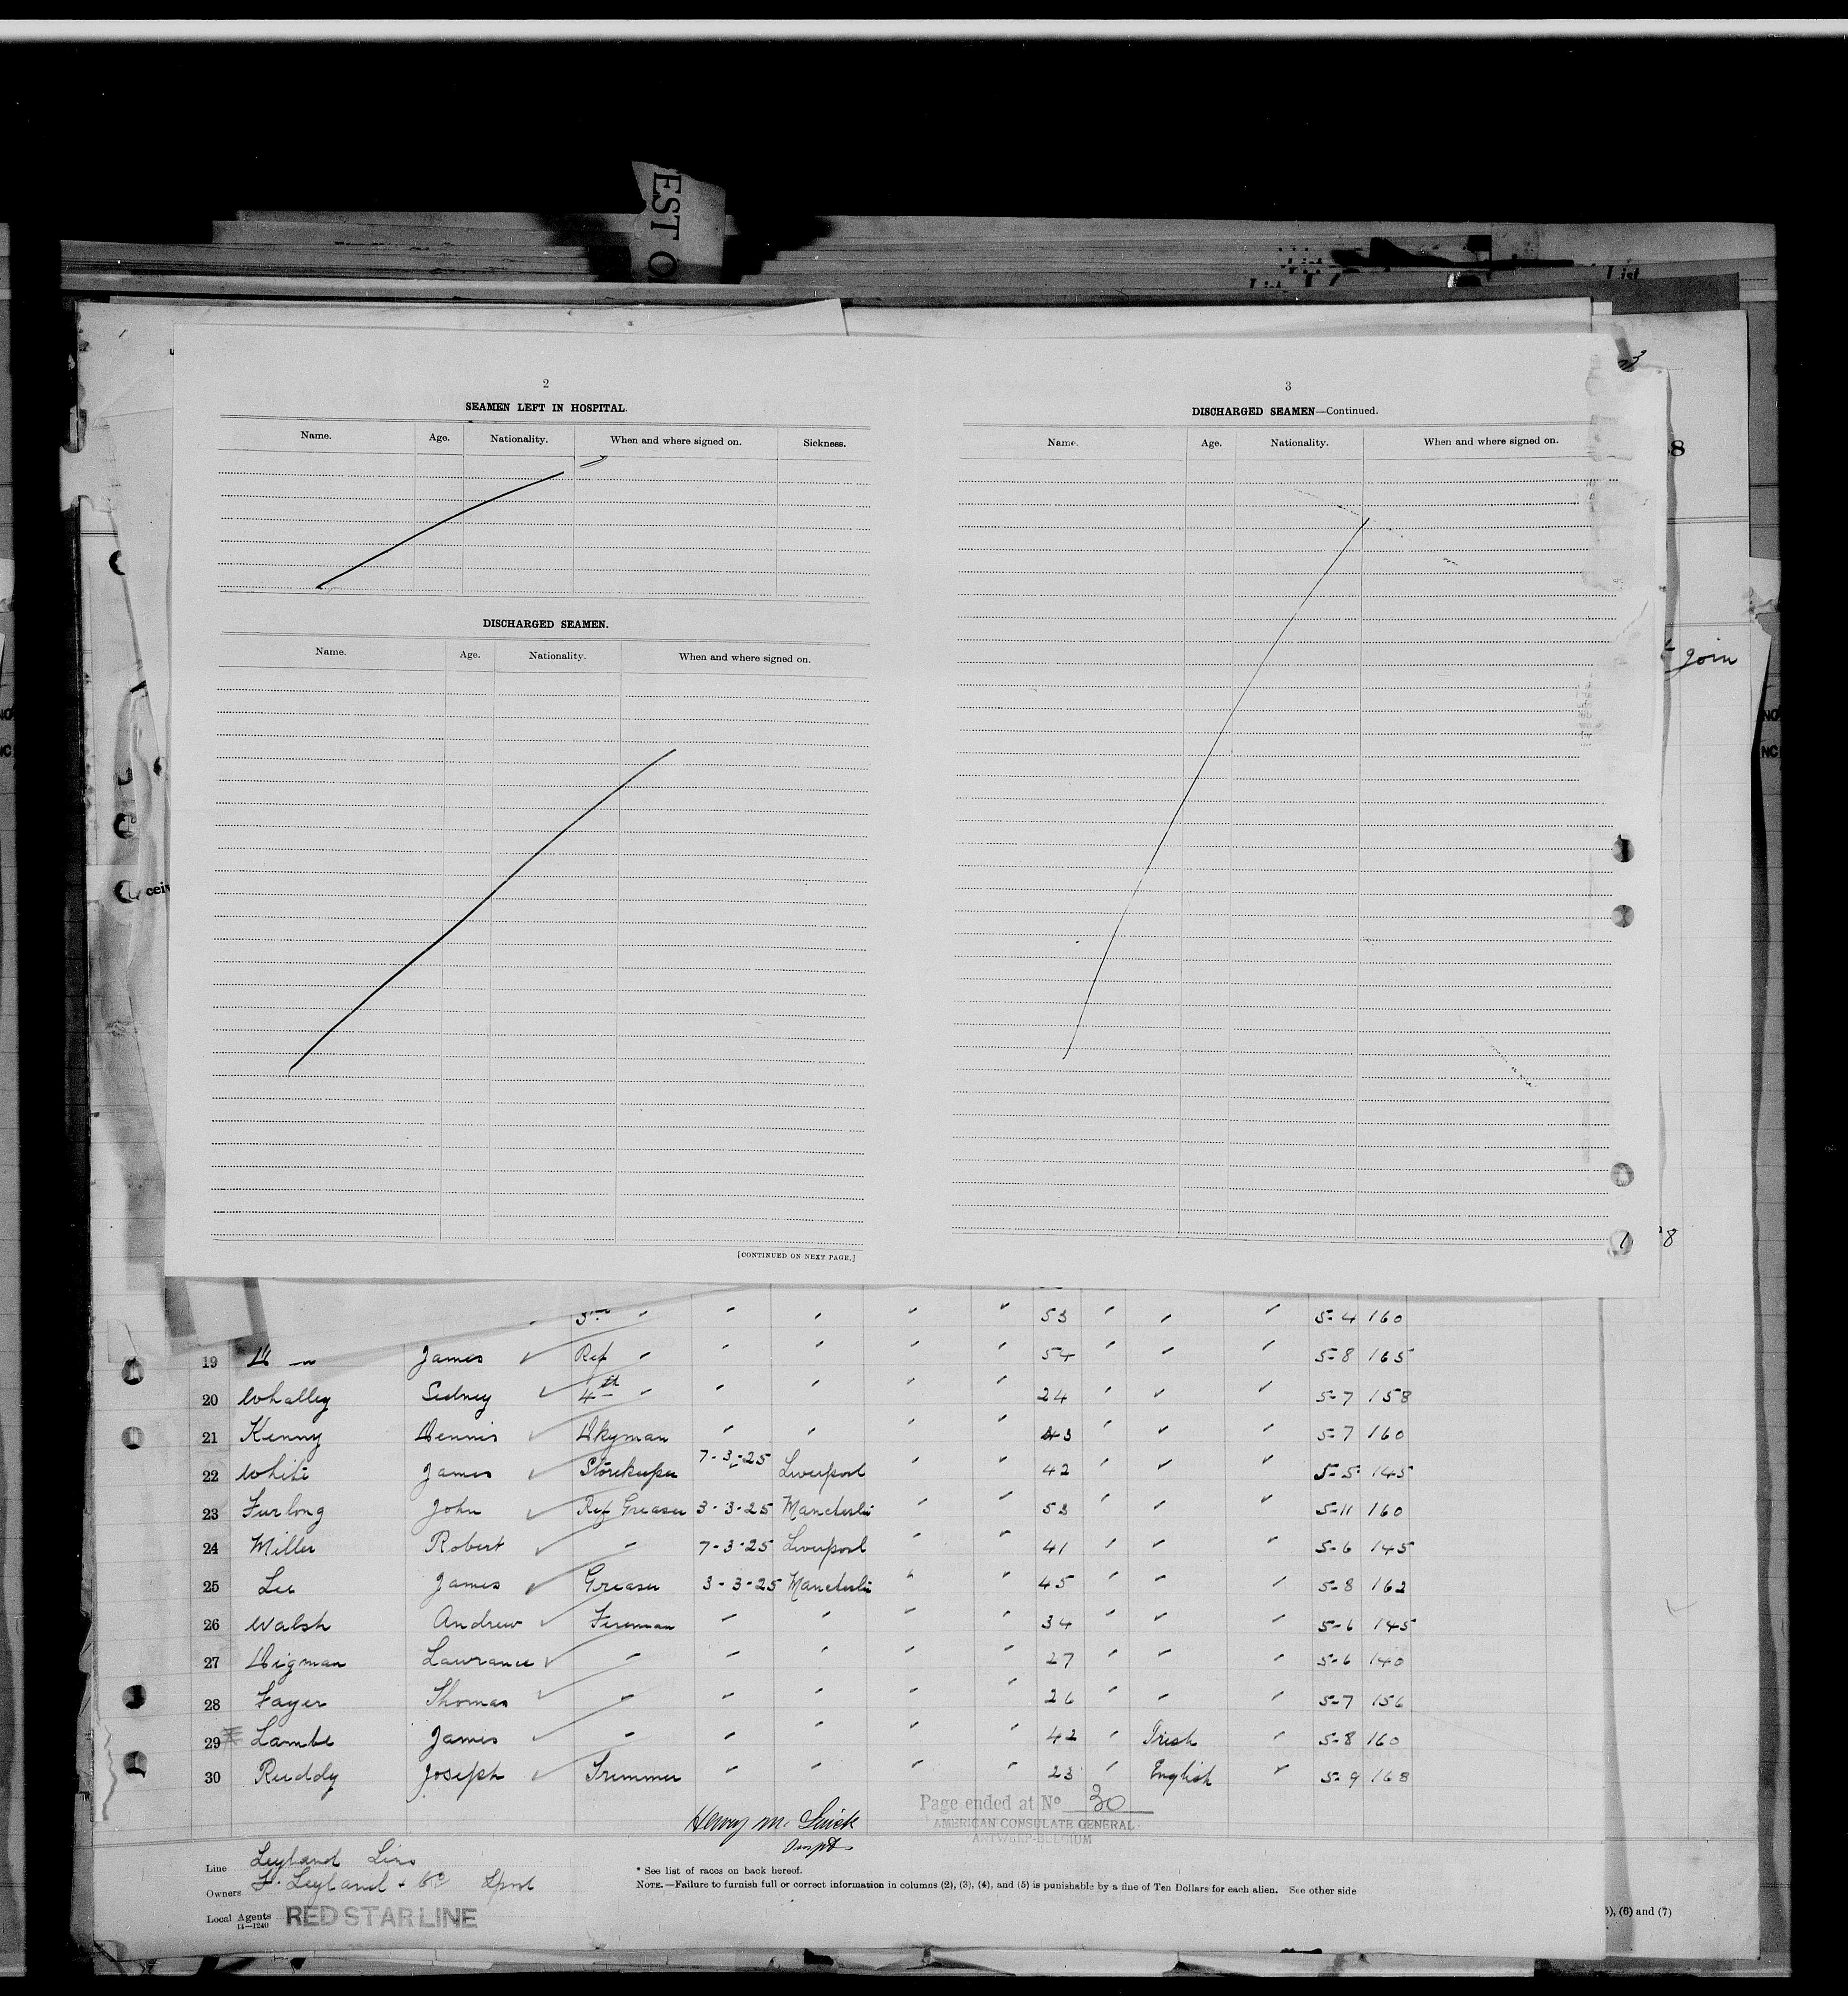 EST O
List
List
3
2
SEAMEN LEFT IN HOSPITAL.
Name. Age. Nationality. When and where signed on. Sickness.
DISCHARGED SEAMEN.
Name. Age. Nationality. When and where signed on.
[CONTINUED ON NEXT PAGE.]
3
DISCHARGED SEAMEN—Continued.
Name. Age. Nationality. When and where signed on.
8
join
NO
NC
NO
NC
cei
8
3rd " " " " " 53 " " " 5-4 160
19 James ✓ Ref " " " " " 54 " " " 5-8 165
20 Whalley Sidney ✓ 4th " " " " " 24 " " " 5-7 158
21 Kenny Dennis ✓ Dkyman " " " " 43 " " " 5-7 160
22 White James ✓ Storekeeper 7-3-25 Liverpool " " 42 " " " 5-5 145
23 Furlong John ✓ Ref Greaser 3-3-25 Manchester " " 53 " " " 5-11 160
24 Miller Robert ✓ " 7-3-25 Liverpool " " 41 " " " 5-6 145
25 Lee James ✓ Greaser 3-3-25 Manchester " " 45 " " " 5-8 162
26 Walsh Andrew ✓ Fireman " " " " 34 " " " 5-6 145
27 Digman Lawrance ✓ " " " " " 27 " " " 5-6 140
28 Fayer Thomas ✓ " " " " " 26 " " " 5-7 156
29 Lambe James ✓ " " " " " 42 " Irish " 5-8 160
30 Ruddy Joseph ✓ Trimmer " " " " 23 " English " 5-9 168
Page ended at No 30
AMERICAN CONSULATE GENERAL
ANTWERP-BELGIUM
Henry M.
Inspt
Line Leyland Line
Owners F. Leyland & Co Lpool
Local Agents RED STAR LINE
11—1240
* See list of races on back hereof.
NOTE.—Failure to furnish full or correct information in columns (2), (3), (4), and (5) is punishable by a fine of Ten Dollars for each alien. See other side
), (6) and (7)